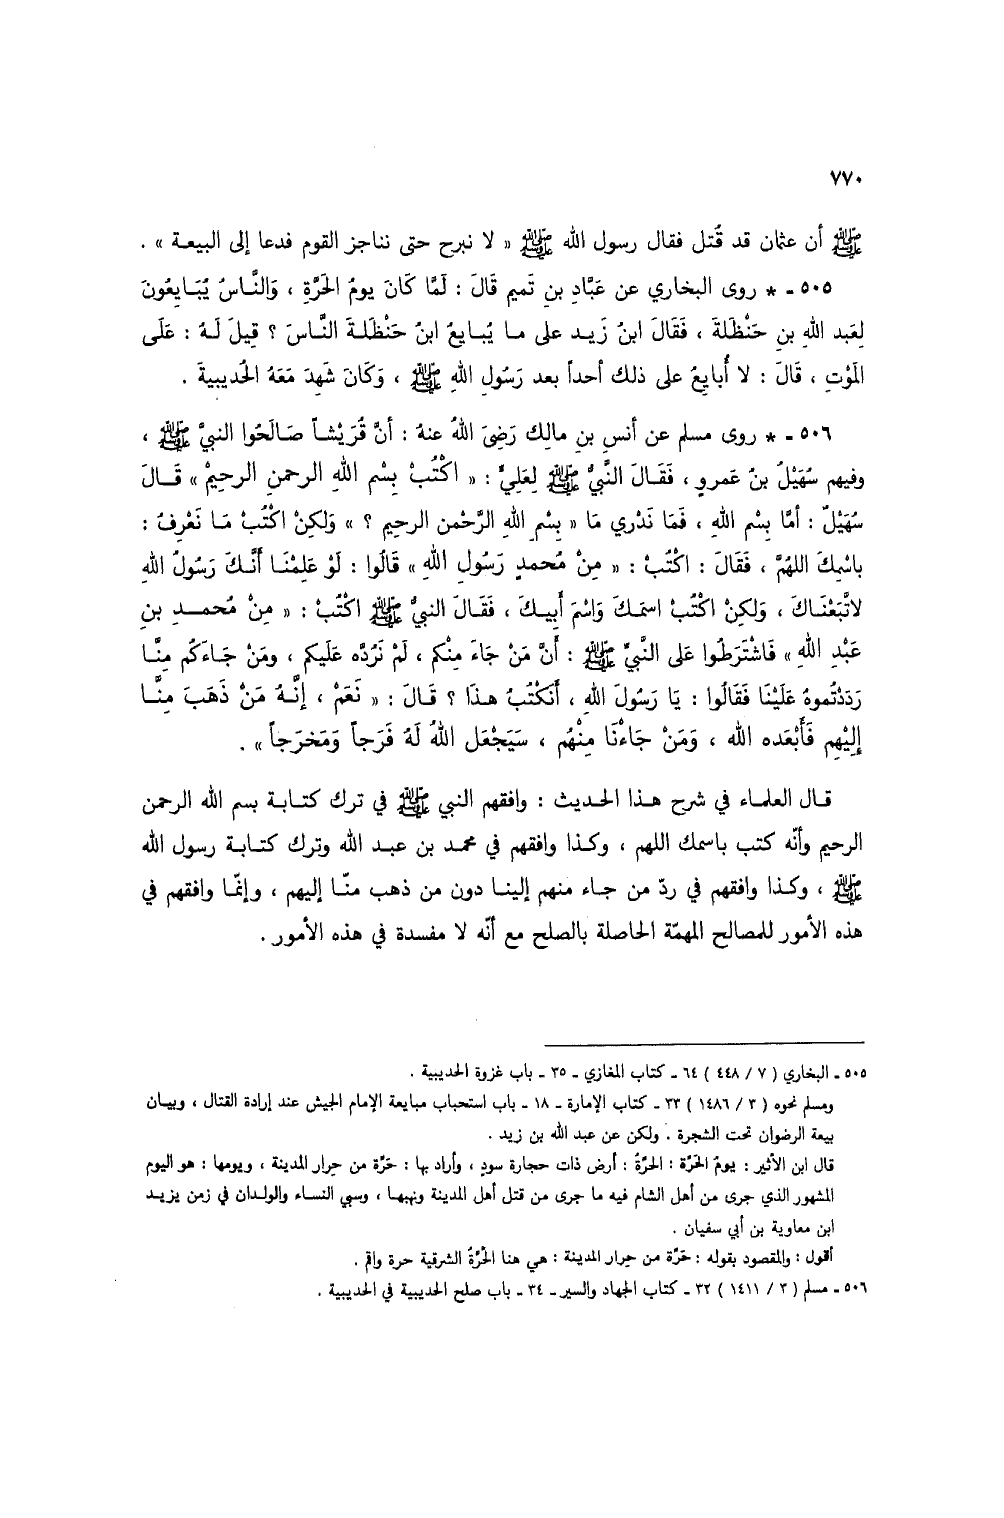 ٧٧٠
ﷺ أن عثمان قد قُتل فقال رسول الله ﷺ « لا نبرح حتى نناجز القوم فدعا إلى البيعة » .
٥٠٥ ـ * روى البخاري عن عبَّادِ بنِ تَميمٍ قَالَ : لَمَّا كَانَ يومُ الحَرَّةِ ، وَالنَّاسُ يُبَايِعُونَ
لِعَبد اللهِ بنِ حَنْظَلَةَ ، فَقَالَ ابنُ زَيد على ما يُبايعُ ابنُ حَنْظَلةَ النَّاسَ ؟ قيلَ لَهُ : عَلَى
المَوْتِ ، قَالَ : لا أُبايعُ على ذلك أحداً بعد رَسُولِ اللهِ ﷺ ، وَكَانَ شَهِدَ مَعَهُ الحُديبيةَ .
٥٠٦ ـ * روى مسلم عن أنسِ بنِ مالِك رَضِيَ اللهُ عنهُ : أنَّ قُرَيْشاً صَالَحُوا النبيَّ ﷺ ،
وفيهم سُهَيْلُ بنُ عَمروٍ ، فَقَالَ النَّبيُّ ﷺ لِعَليٍّ : « اكْتُبْ بِسْمِ اللهِ الرحمنِ الرحيمْ » قَالَ
سُهَيْلٌ : أمَّا بِسْمِ اللهِ ، فَمَا نَدْري مَا « بِسْمِ اللهِ الرَّحْمنِ الرحيمِ ؟ » وَلكِنْ اكْتُبْ مَا نَعْرِفُ :
باسْمِكَ اللهُمَّ ، فَقَالَ : اكْتُبْ : « مِنْ مُحمدٍ رَسُولِ اللهِ » قَالُوا : لَوْ عَلِمْنَا أَنَّكَ رَسُولُ اللهِ
لاتَّبَعْنَاكَ ، وَلكِنْ اكْتُبْ اسمَكَ وَاسْمَ أَبيكَ ، فَقَالَ النبيُّ ﷺ اكْتُبْ : « مِنْ مُحمدِ بنِ
عَبْدِ اللهِ » فَاشْتَرَطُوا عَلى النَّبيِّ ﷺ : أنَّ مَنْ جَاءَ مِنْكم ، لَمْ نَرُدَّه عَلَيكم ، ومَنْ جَاءَكُم مِنَّا
رَدَدْتُموهُ عَلَيْنَا فَقَالُوا : يَا رَسُولَ اللهِ ، أَنَكْتُبُ هذَا ؟ قَالَ : « نَعَمْ ، إنَّهُ مَنْ ذَهَبَ مِنَّا
إلَيْهِم فَأَبْعَده الله ، وَمَنْ جَاءْنَا مِنْهُم ، سَيَجْعَل اللهُ لَهُ فَرَجاً وَمَخرَجاً » .
قال العلماء في شرح هذا الحديث : وافقهم النبي ﷺ في ترك كتابة بسم الله الرحمن
الرحيم وأنّه كتب باسمك اللهم ، وكذا وافقهم في محمد بن عبد الله وترك كتابة رسول الله
ﷺ ، وكذا وافقهم في ردّ من جاء منهم إلينا دون من ذهب منّا إليهم ، وإنّما وافقهم في
هذه الأمور للمصالح المهمّة الحاصلة بالصلح مع أنّه لا مفسدة في هذه الأمور .
٥٠٥ ـ البخاري ( ٧ / ٤٤٨ ) ٦٤ ـ كتاب المغازي ـ ٣٥ ـ باب غزوة الحديبية .
ومسلم نحوه ( ٣ / ١٤٨٦ ) ٣٣ ـ كتاب الإمارة ـ ١٨ ـ باب استحباب مبايعة الإمام الجيش عند إرادة القتال ، وبيان
بيعة الرضوان تحت الشجرة . ولكن عن عبد الله بن زيد .
قال ابن الأثير : يومُ الحَرَّة : الحرَّةُ : أرض ذات حجارة سودٍ ، وأراد بها : حَرَّة من حِرار المدينة ، ويومها : هو اليوم
المشهور الذي جرى من أهل الشام فيه ما جرى من قتل أهل المدينة ونهبها ، وسبي النساء والولدان في زمن يزيد
ابن معاوية بن أبي سفيان .
أقول : والمقصود بقوله : حَرَّة من حِرار المدينة : هي هنا الحُرَّةُ الشرقية حرة واقم .
٥٠٦ ـ مسلم ( ٣ / ١٤١١ ) ٣٢ ـ كتاب الجهاد والسير ـ ٣٤ ـ باب صلح الحديبية في الحديبية .